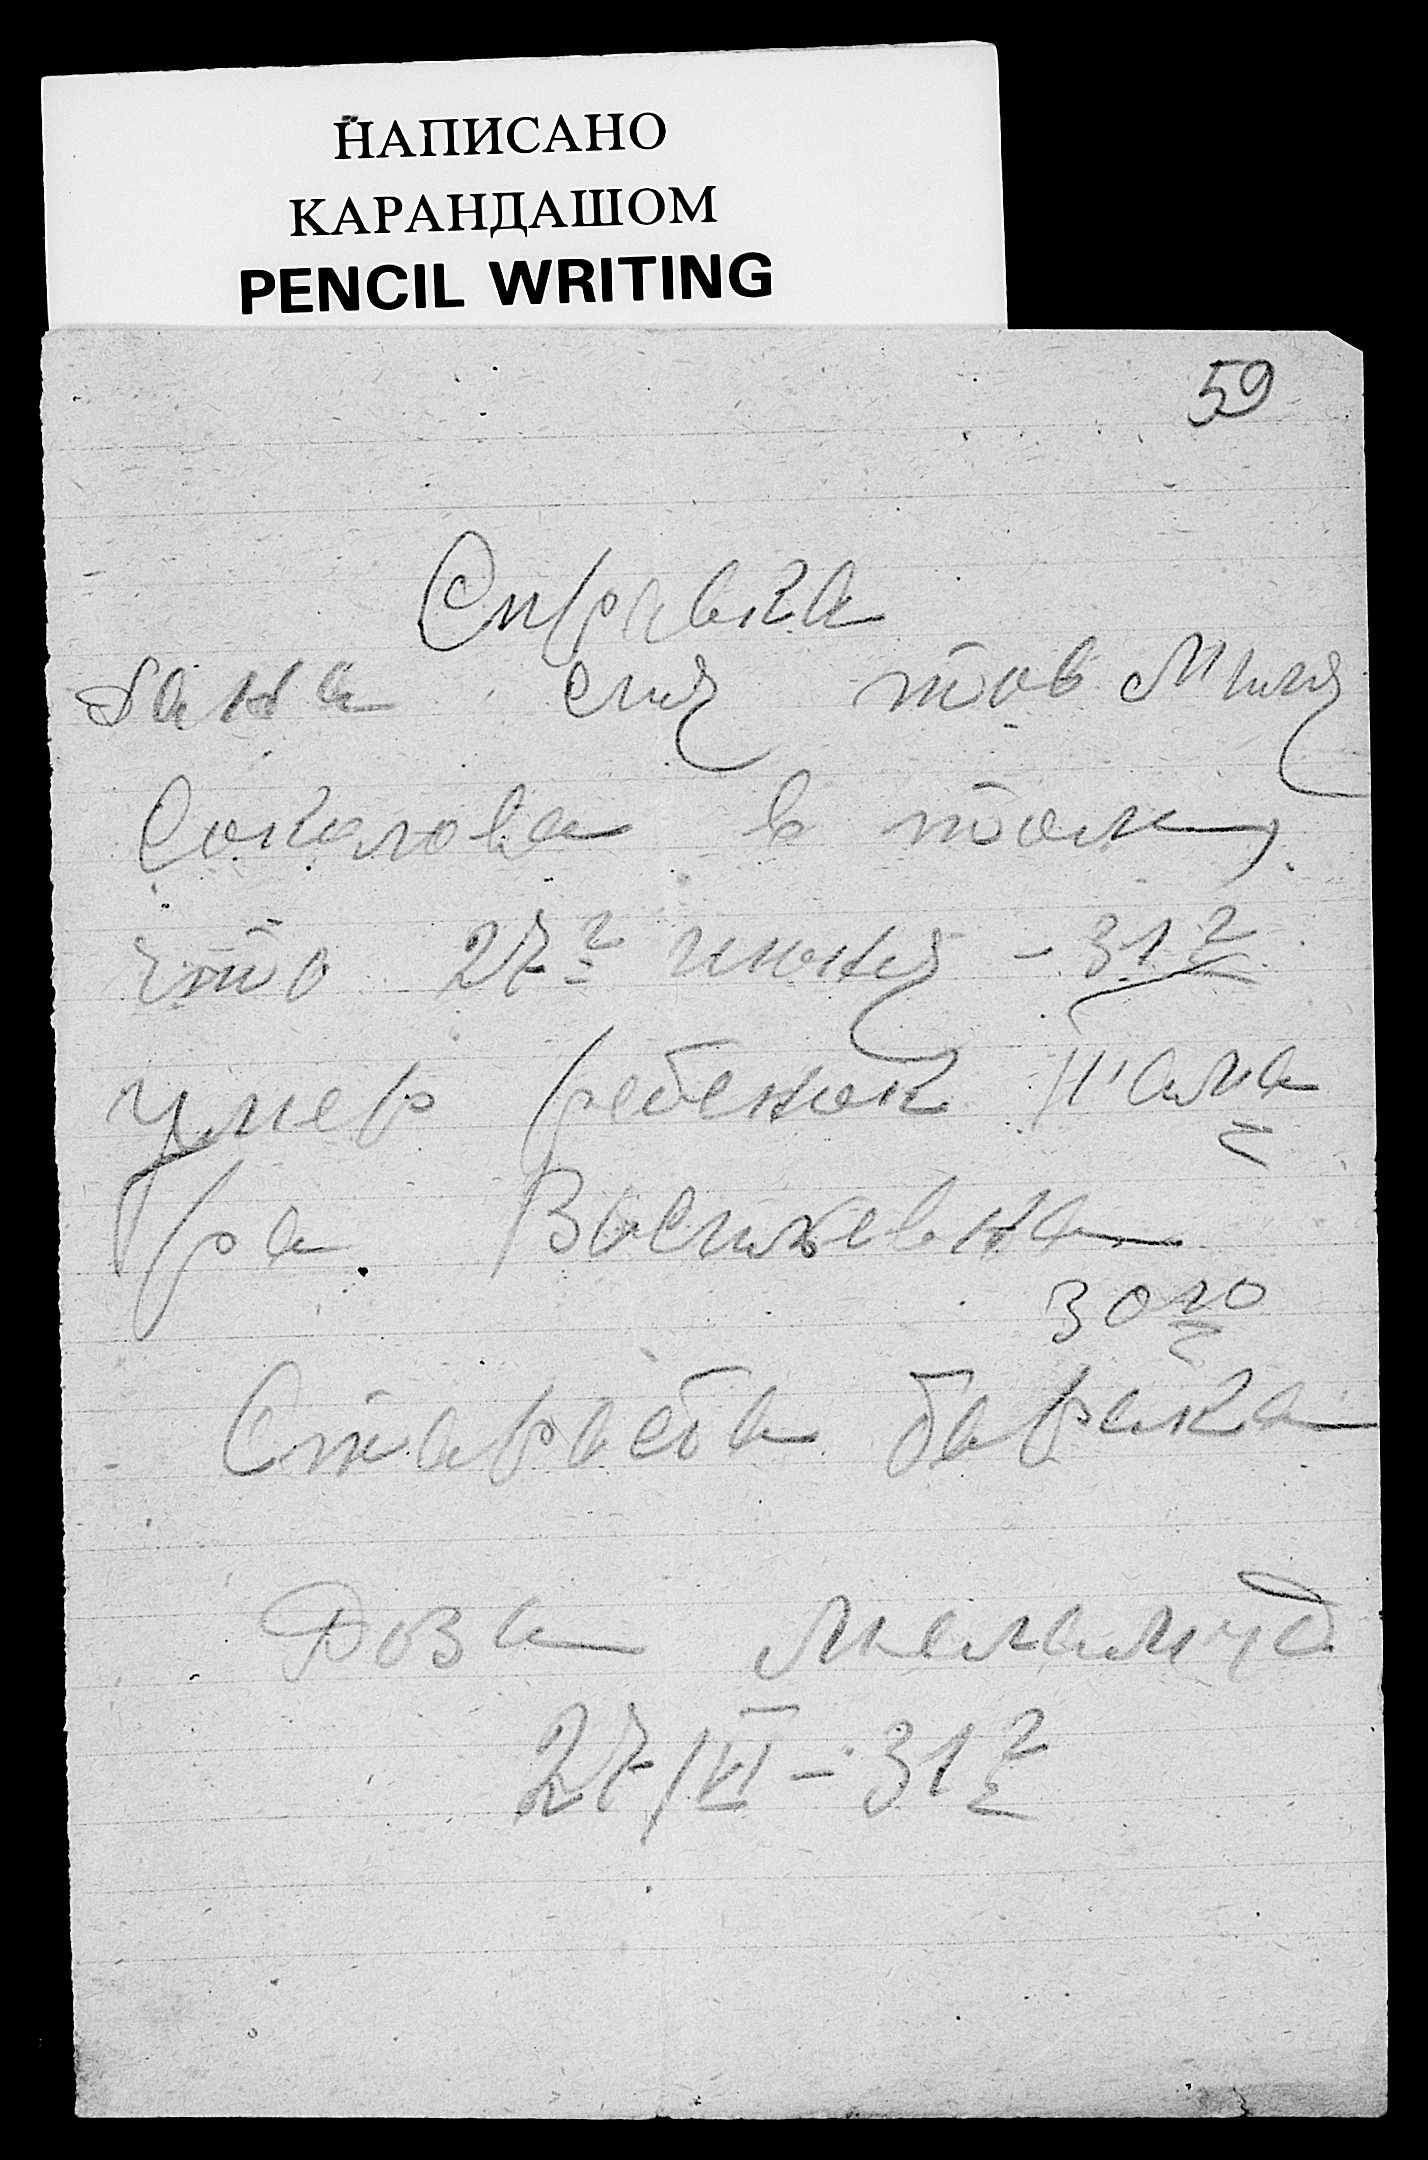 НАПИСАНО
КАРАНДАШОМ
PENCIL WRITING
59
Справка
дана сия тов Миля
Соколова в том,
что 27г июня - 31г
умер ребенок Тама
ра Василевна
30го
Стараста барака
27/VI - 31г